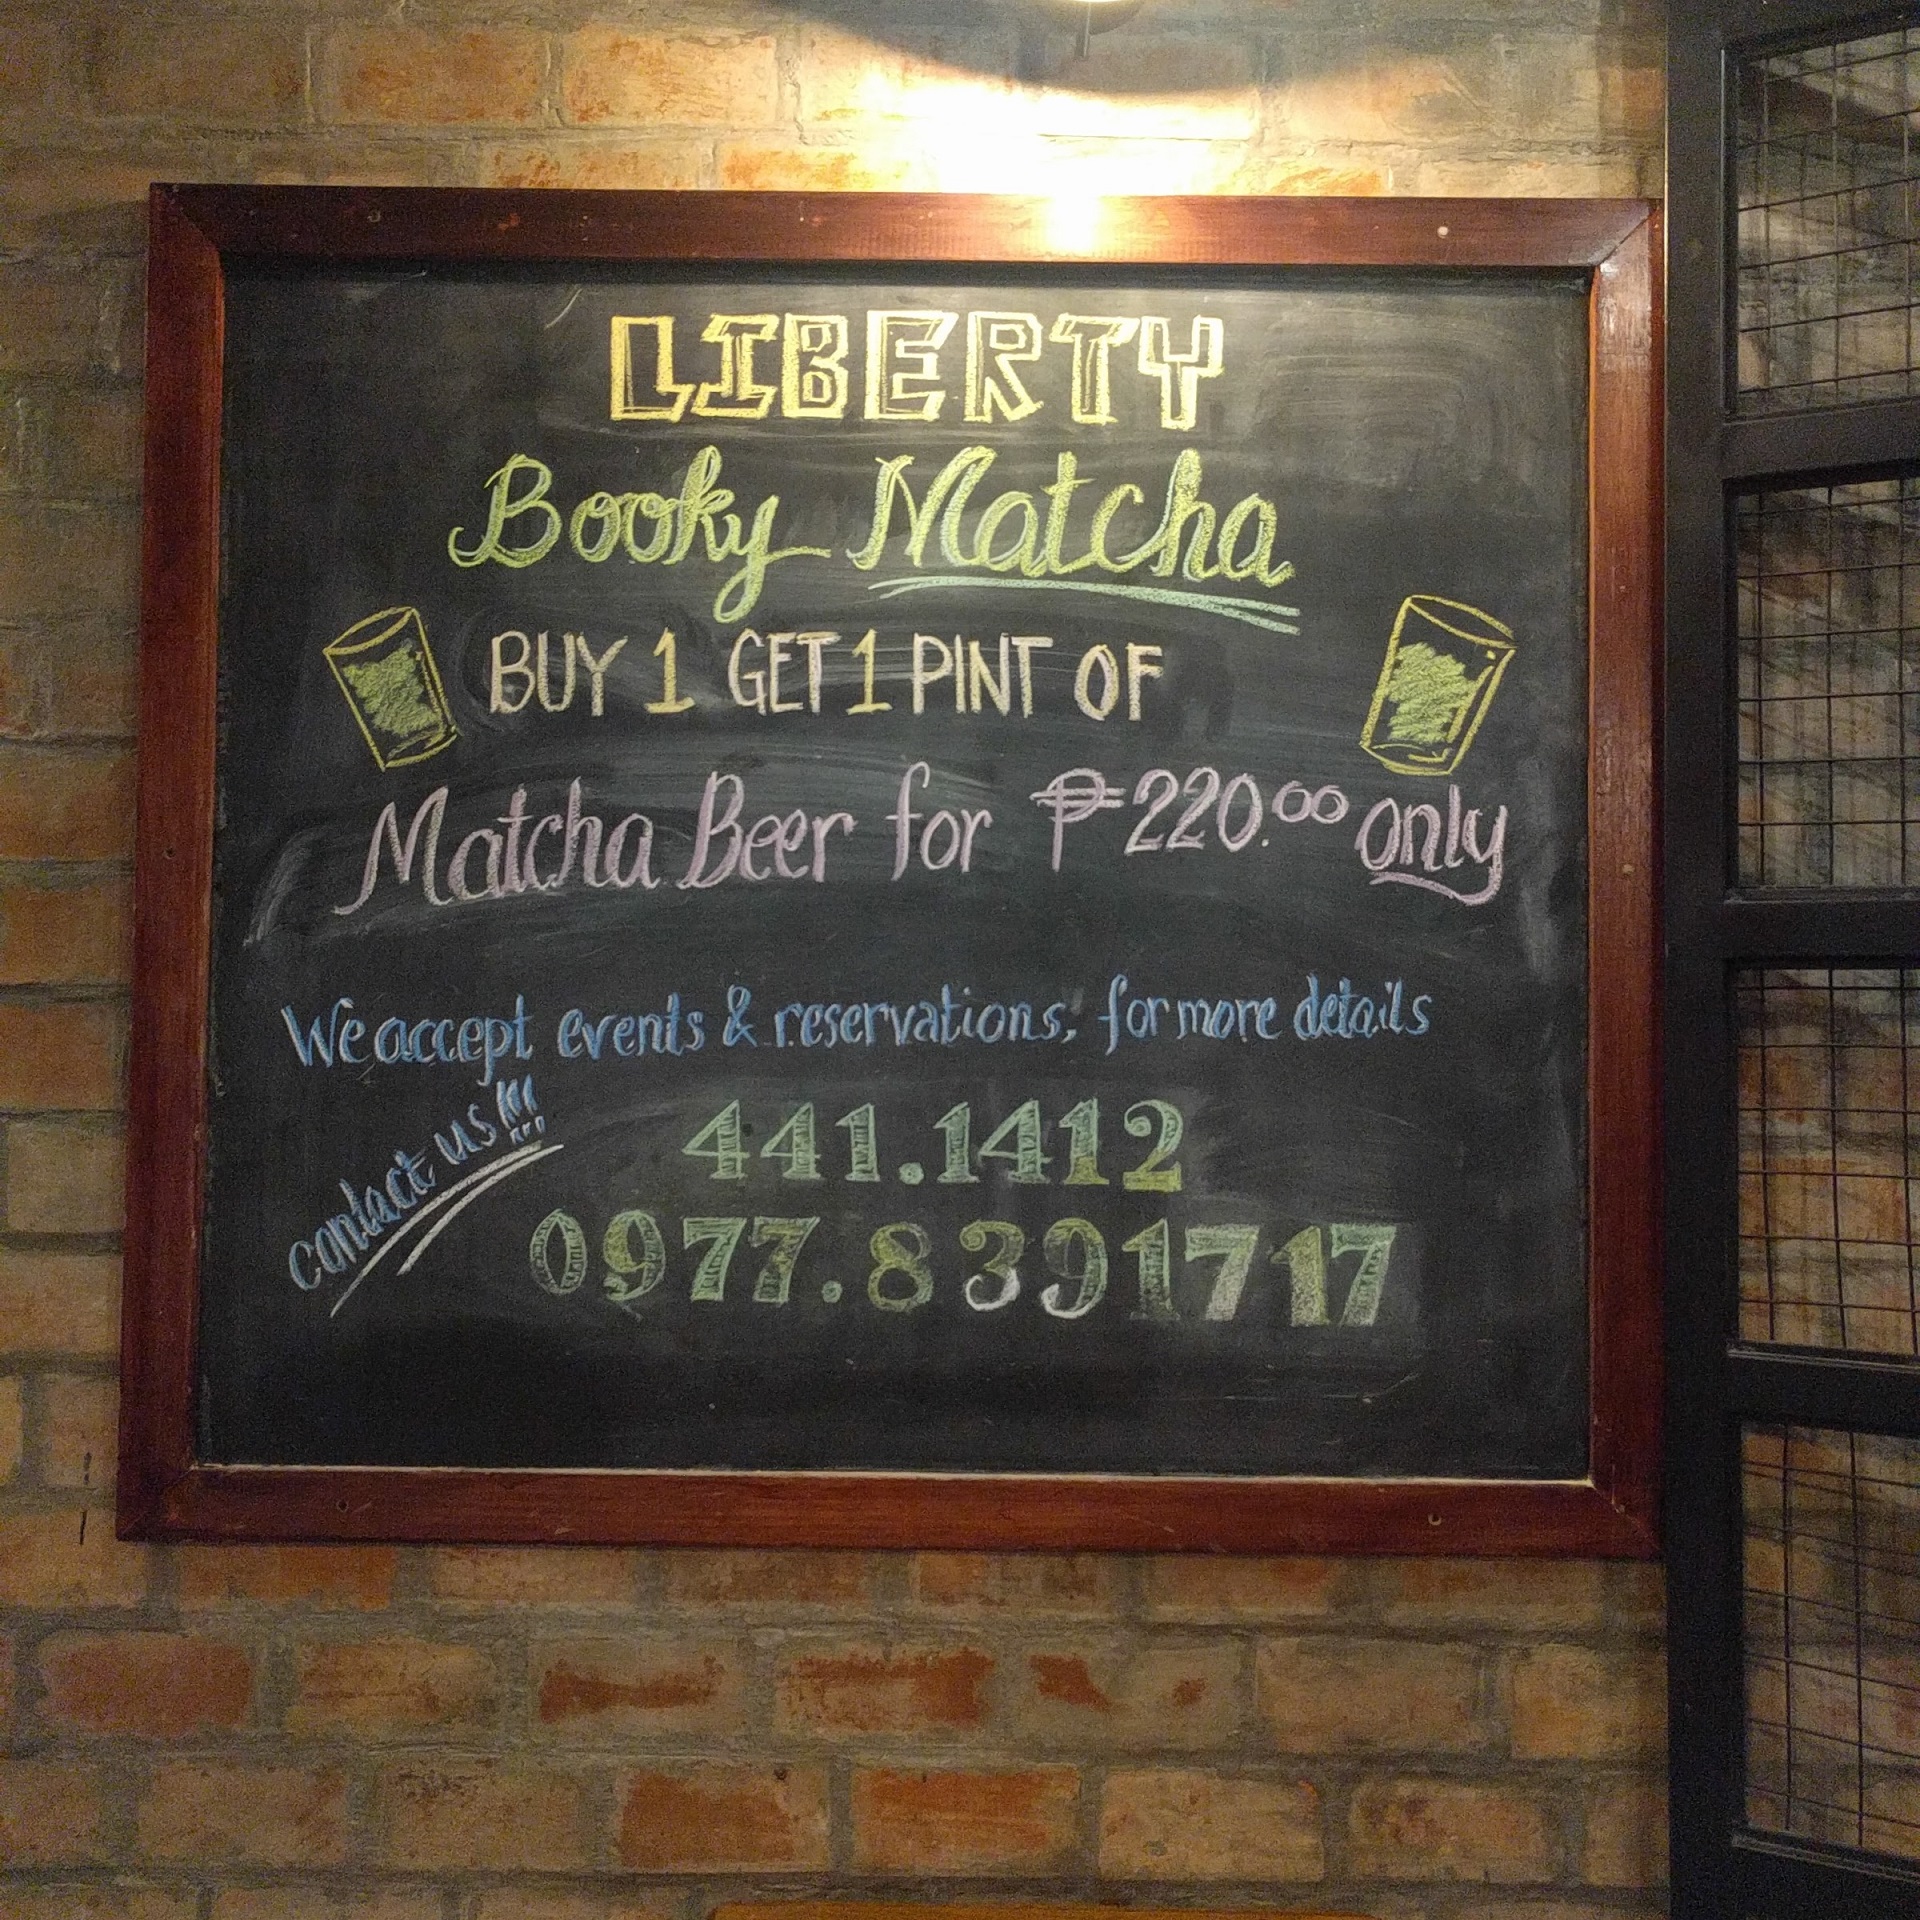 LIBERTY
Booky Matcha
BUY 1 GET 1 PINT OF
Matcha Beer for ₱220.00 only
We accept events & reservations, for more details
contact us!!!
441.1412
0977.8391717